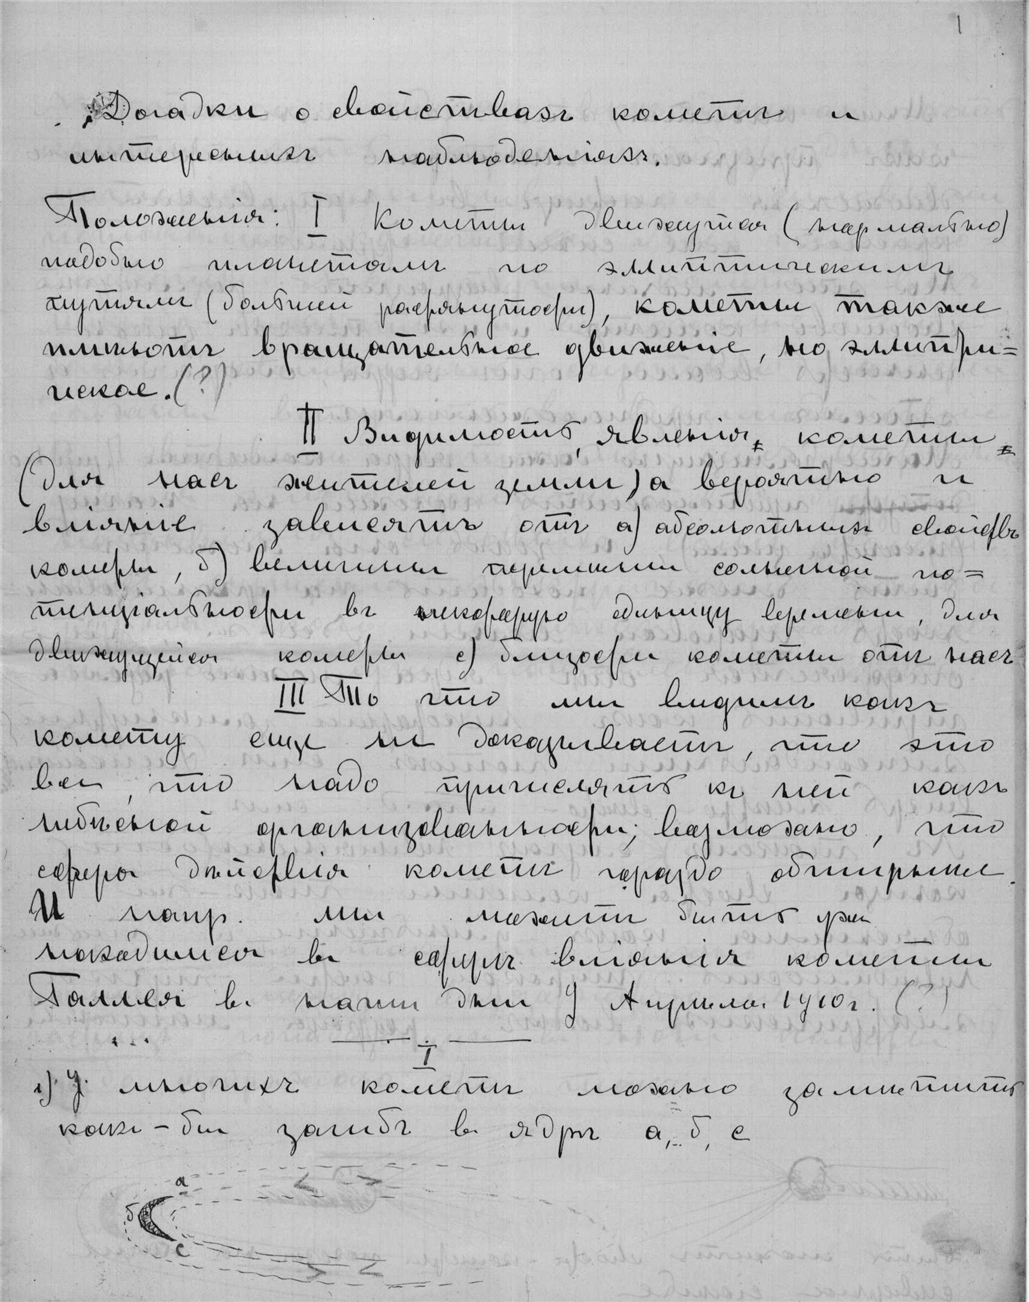 1
Догадки о свойствахъ кометъ и
интересныхъ наблюденiяхъ.
Положенiя: I Кометы движутся (нормально)
подобно планетамъ по эллиптическимъ
путямъ (большей растянутости), кометы также
имѣютъ вращательное движенiе, но эллипти=
ческое. (?)
II Видимость, явленiя кометы
(для насъ жителей земли) а вѣроятно и
влiянiе зависятъ отъ а) абсолютныхъ свойствъ
кометы, б) величины перемены солнечной по=
тенцiальности въ некоторую единицу времени, для
движущейся кометы с) близости кометы отъ насъ
III То что мы видимъ какъ
комету еще не доказываетъ, что это
все, что надо причислять къ ней какъ
небесной организованности; возможно, что
сфера дѣйствiя кометъ гораздо обширнѣе.
И напр. мы можетъ быть уже
находимся въ сферѣ влiянiя кометы
Галлея въ наши дни 9 Апрѣля 1910г. (?)
I
1) У многихъ кометъ можно замѣтить
какъ-бы загибъ въ ядрѣ а, б, с
а
б
с